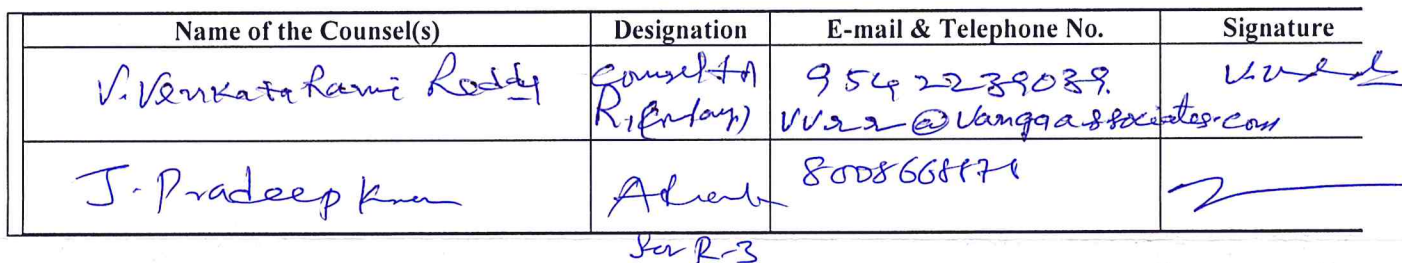 Name of the Counsel(s) Designation E-mail & Telephone No. Signature
V. Venkata Rami Reddy Counsel for 9542239039.
R1 vvrr@vangaassociates.com
J. Pradeep Kumar Advocate 8008668171
for R-3